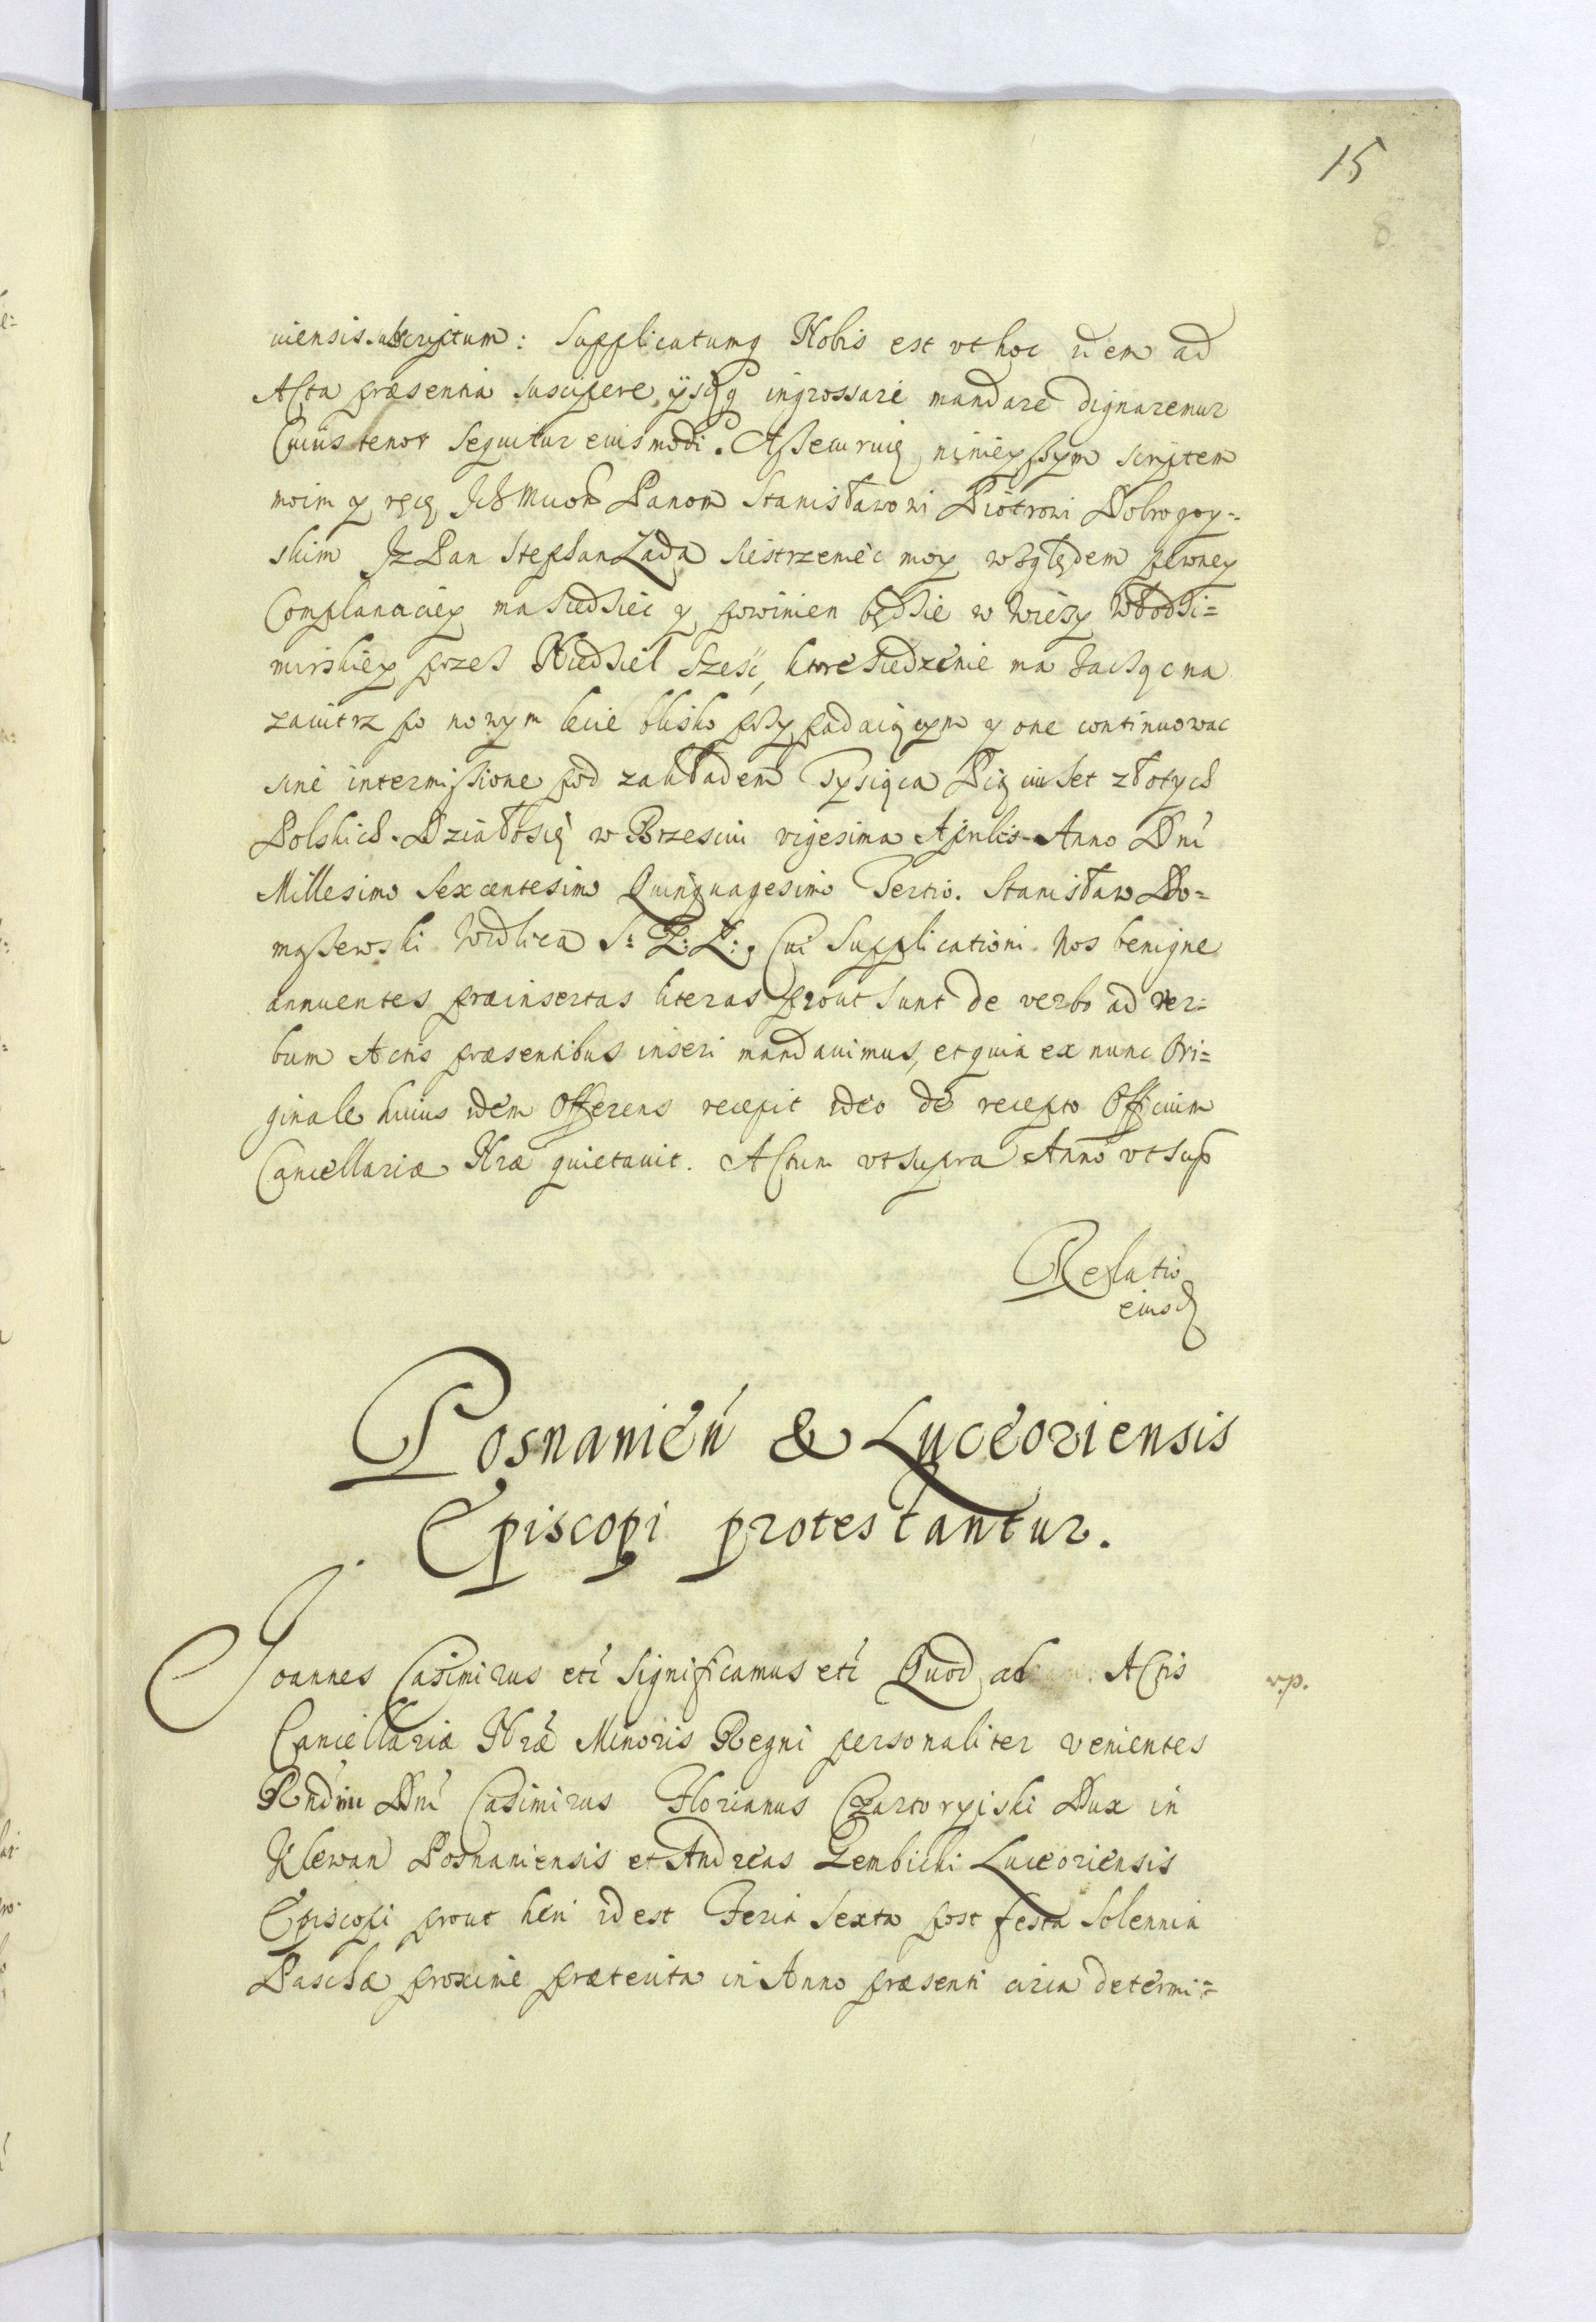 15
8
uiensis subscriptum: Supplicatumq Nobis est vt hoc idem ad
Acta præsentia suscipere ijsdq ingrossare mandare dignaremur
Cuius tenor sequitur eiusmodi. Assecuruię ninieyszym scriptem
moim y ręcę Ich Mciom Panom Stanisławowi Piotrowi Dobrogoy=
skim Iz Pan Stephan Łada siestrzeniec moy względem pewney
Complanaciey ma siedzieć y powinien będzie w wiezy Włodzi=
mirskiey przez Niedziel sześć, ktore siedzenie ma zacząc na
zaiutrz po nowym lecie blisko przypadaiącym y one continuowac
sine intermissione pod zakładem Tysiąca Pięciuset złotych
Polskich. Działosię w Brzesciu vigesima Aprilis Anno Dni
Millesimo Sexcentesimo Quinquagesimo Tertio. Stanisław Do=
maszewski Woditca S: Z: Ł: Cui Supplicationi Nos benigne
annuentes præinsertas literas prout sunt de verbo ad ver=
bum Actis præsentibus inseri mandauimus, et quia ex nunc Ori=
ginale huius idem Offerens recepit ideo de recepto Officium
Cancellariæ Nræ quietauit. Actum vt supra Anno vt sup
Relatio
eiusd
Posnanien & Luceoriensis
Episcopi protestantur.
Joannes Casimirus etc Significamus etc Quod ad Actis
v.p.
Cancellariæ Nræ Minoris Regni personaliter venientes
Rndmi Dni Casimirus Florianus Czartoryiski Dux in
Klewan Posnaniensis et Andreas Gembicki Luceoriensis
Episcopi prout heri id est Feria Sexta post festa solennia
Paschæ proxime præterita in Anno præsenti circa determi=